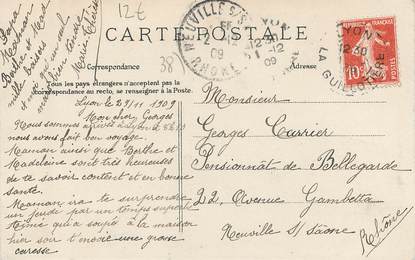 12€
38
CARTE POSTALE
Correspondance
Adresse
Tous les pays étrangers n'acceptent pas la
correspondance au recto, se renseigner à la Poste.
NEUVILLE S/S
RHÔNE
09
LYON
LA GUILLOT
RHÔNE
10
Maman
Berthe et Mad
mille baisers
Marie Thérèse
Lyon le 29/11 1909
Mon cher Georges
Nous sommes arrivés à Lyon à 8h10
nous avons fait bon voyage.
Maman ainsi que Berthe et
Madeleine sont très heureuses
de te savoir content et en bonne
santé.
Maman ira te surprendre
un jeudi par un temps superbe
Tima qui a soupé à la maison
hier soir t'envoie une grosse
caresse.
Monsieur
Georges Carrier
Pensionnat de Bellegarde
22, Avenue Gambetta
Neuville S/ Saône
Rhône